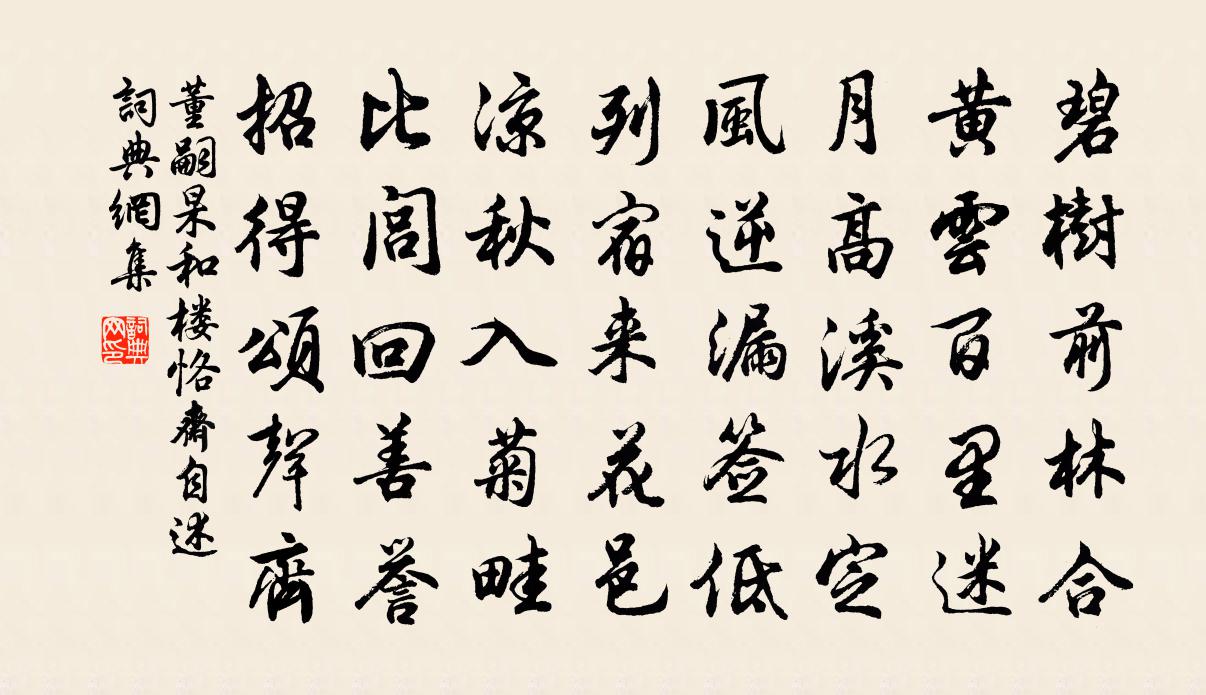 碧樹前林合
黄雲百里迷
月高溪水定
風逆漏签低
列宿来花邑
凉秋入菊畦
比閭回善誉
招得頌聲齊
董嗣杲和楼恪齋自述
詞典網集
詞典网印